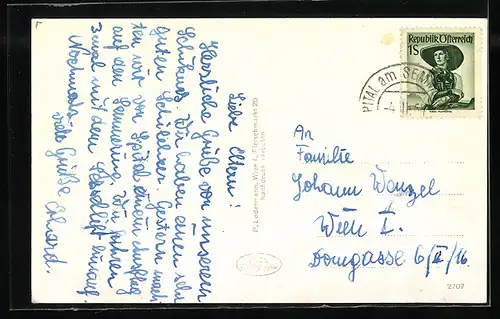 Liebe Eltern!
Herzliche Grüße von unserem
Schikurs. Wir haben einen sehr
guten Schilehrer. Gestern mach-
ten wir von Spital einen Ausflug
auf den Semmering. Wir fuhren
zweimal mit dem Sessellift hinauf.
Nochmals
viele Grüße
Erhard.
P. Ledermann, Wien I, Fleischmarkt 20
Nachdruck verboten
Republik Österreich
1S
PITAL am SEMM
An
Familie
Johann Wanzel
Wien I.
Domgasse 6/II/16
2707